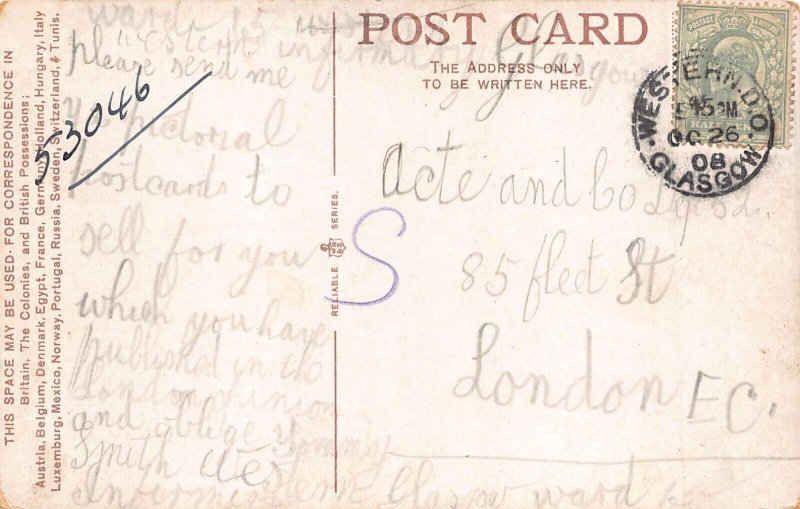 POST CARD
THE ADDRESS ONLY
TO BE WRITTEN HERE.
THIS SPACE MAY BE USED FOR CORRESPONDENCE IN
Britain, The Colonies, and British Possessions;
Austria, Belgium, Denmark, Egypt, France, Germany, Holland, Hungary, Italy
Luxemburg, Mexico, Norway, Portugal, Russia, Sweden, Switzerland, & Tunis.
ward 15
Western infirmary Glasgow
please send me
pictorial
postcards to
sell for you
which you have
published in
London
and oblige
Tommy
Smith Wes
Glasgow ward
53046
RELIABLE SERIES.
S
Acte and Co
85 fleet St
London EC.
POSTAGE REVENUE
HALFPENNY
WESTERN D.O
GLASGOW
OC 26
08